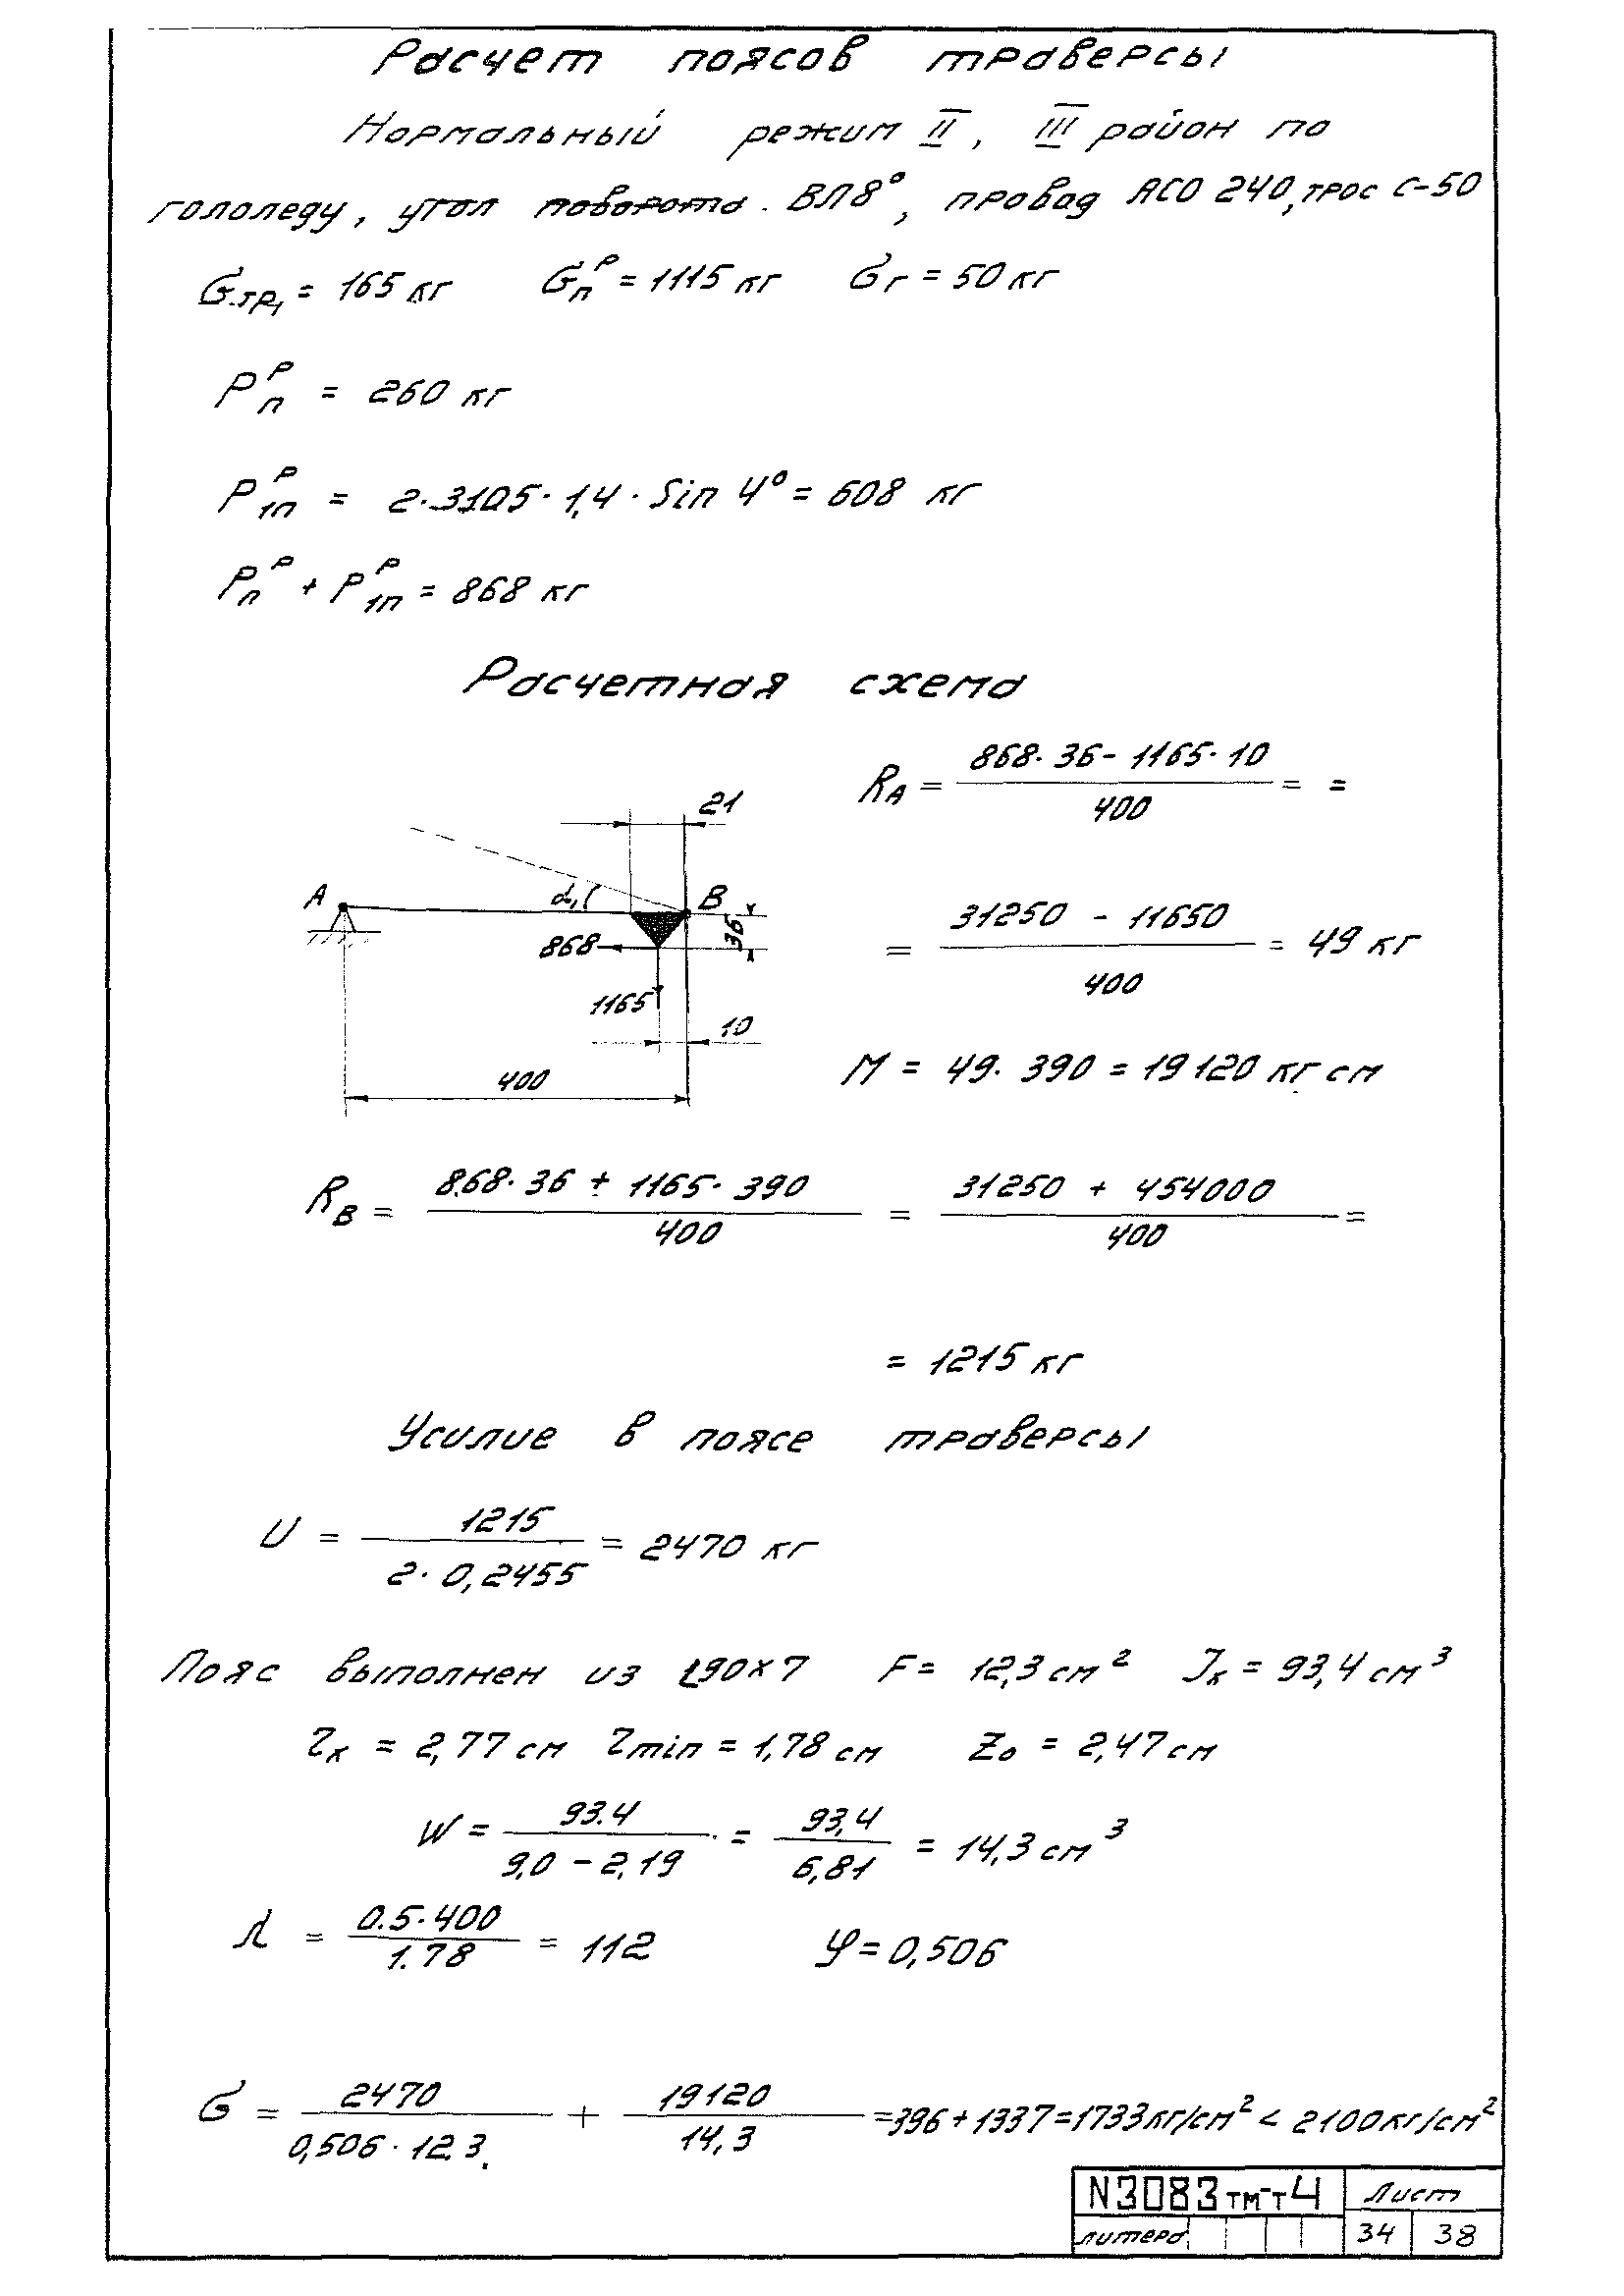 Расчет поясов траверсы
Нормальный режим II, III район по
гололеду, угол поворота ВЛ 8°, провод АСО 240, трос С-50
Gтр, = 165 кг   Gп^р = 1115 кг   Gг = 50 кг
Pп^р = 260 кг
P1п^р = 2·3105·1,4·Sin 4° = 608 кг
Pп^р + P1п^р = 868 кг
Расчетная схема
RA = (868·36 - 1165·10) / 400 = =
= (31250 - 11650) / 400 = 49 кг
M = 49·390 = 19120 кг см
21
A
α1
B
36
868
1165
10
400
RB = (868·36 + 1165·390) / 400 = (31250 + 454000) / 400 =
= 1215 кг
Усилие в поясе траверсы
U = 1215 / (2·0,2455) = 2470 кг
Пояс выполнен из L90×7   F = 12,3 см²   Jк = 93,4 см³
rк = 2,77 см   rmin = 1,78 см   Z0 = 2,47 см
W = 93.4 / (9,0 - 2,19) = 93,4 / 6,81 = 14,3 см³
λ = 0.5·400 / 1.78 = 112   φ = 0,506
G = 2470 / (0,506·12.3) + 19120 / 14,3 = 396 + 1337 = 1733 кг/см² < 2100 кг/см²
N3083тм-т4
Лист
литера
34
38